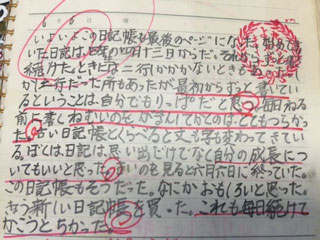 6月6日 曜日
いよいよこの日記帳も最後のページになった。
いた日記は 四月十三日からだ。それから
続けた。ときには一行しかかかないときも
が一行だった所もあったが最初からずっと書いている
ということは自分でもりっぱだと思う。毎日ねる
前に書くねむいのをがまんしてかくのはとてもつらかっ
た。古い日記帳とくらべると文も字も変わってきてい
る。ぼくは日記は思い出だけでなく自分の成長につ
いてもいいと思った。 のを見ると六月六日に終っていた。
この日記帳もそうだった。なにかおもしろいと思った。
きょう新しい日記帳を買った。これも毎日続けて
かこうと思った。